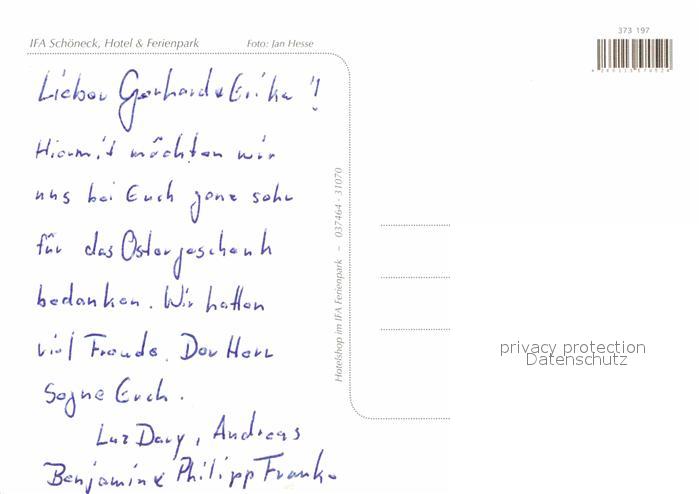 IFA Schöneck, Hotel & Ferienpark
Foto: Jan Hesse
373 197
Lieber Gerhard & Erika!
Hiermit möchten wir
uns bei Euch ganz sehr
für das Ostergeschenk
bedanken. Wir hatten
viel Freude. Der Herr
Segne Euch.
Luz Dary, Andreas
Benjamin & Philipp Franke
Hotelshop im IFA Ferienpark – 037464 - 31070
privacy protection
Datenschutz